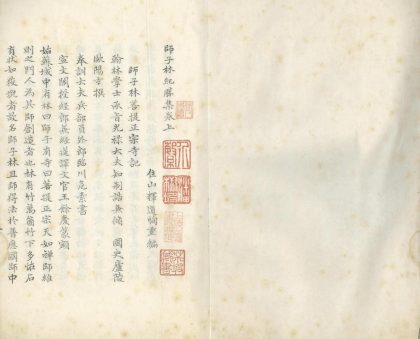 師子林紀勝集卷上
住山釋道恂重編
師子林菩提正宗寺記
翰林學士承旨光祿大夫知制誥兼修 國史廬陵
歐陽玄撰
奉訓大夫兵部員外郎臨川危素書
宣文閣授經郎兼經筵譯文官王餘慶篆額
姑蘇城中有林曰師子有寺曰菩提正宗天如禪師維
則之門人為其師創造者也林有竹萬箇竹下多怪石
有狀如狻猊者故名師子林且師得法於普應國師中